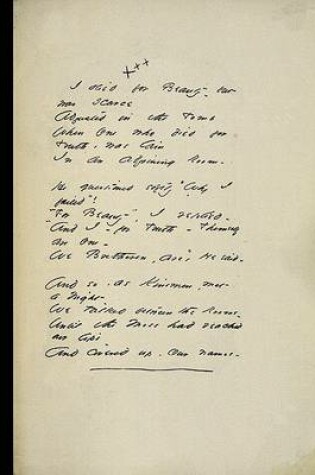 I died for Beauty - but
was scarce
Adjusted in the Tomb
When One who died for
Truth, was lain
In an Adjoining Room -
He questioned softly "Why I
failed"?
"For Beauty", I replied -
"And I - for Truth - Themself
are One -
We Brethren, are", He said -
And so, as Kinsmen, met
a Night -
We talked between the Rooms -
Until the Moss had reached
our lips -
And covered up - Our names -